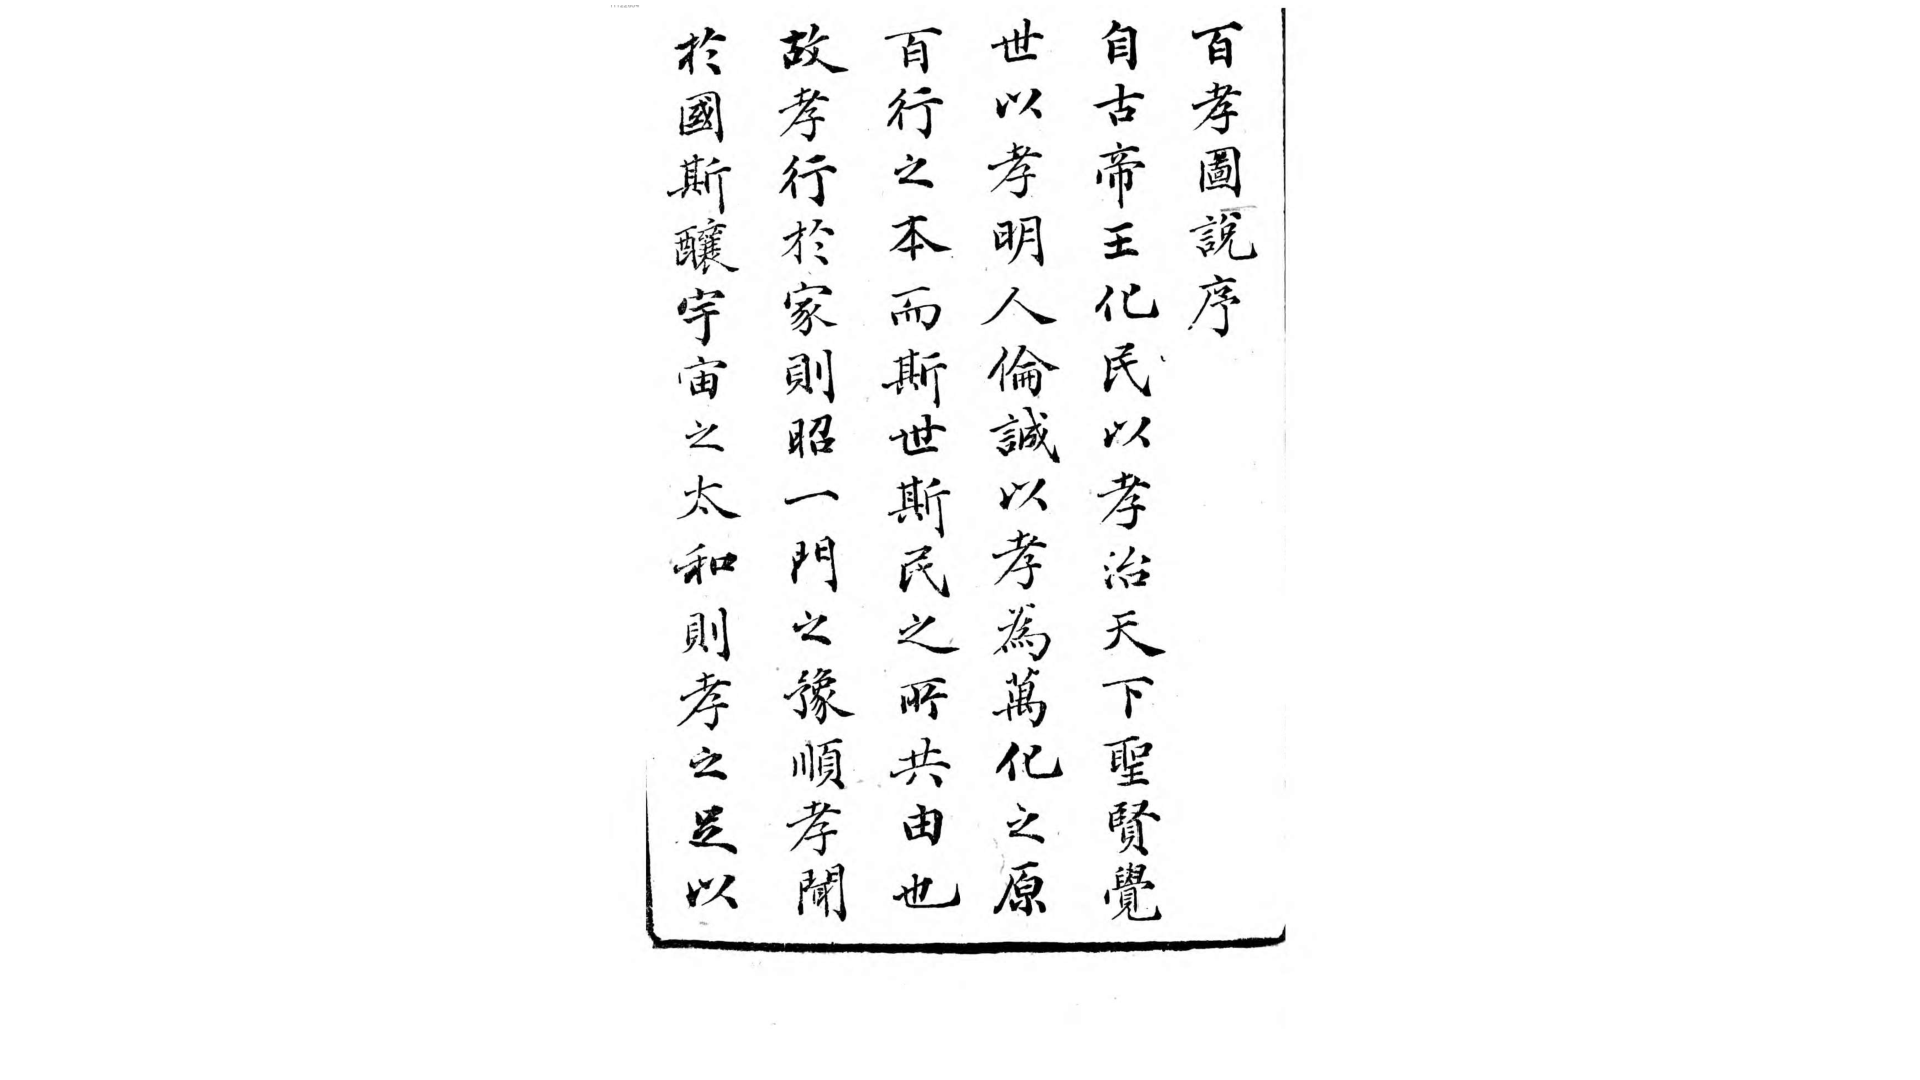 百孝圖說序
自古帝王化民以孝治天下聖賢覺
世以孝明人倫誠以孝為萬化之原
百行之本而斯世斯民之所共由也
故孝行於家則昭一門之豫順孝聞
於國斯釀宇宙之太和則孝之足以